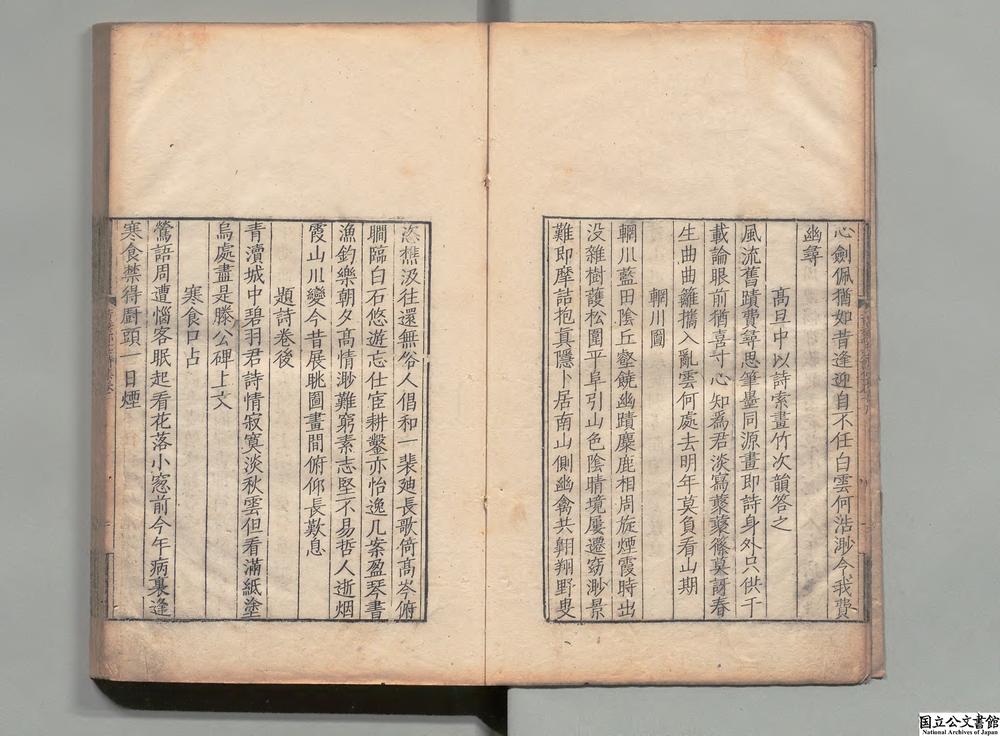 心劍佩猶如昔逢迎自不任白雲何浩渺令我費
幽尋
高旦中以詩索畫竹次韻答之
風流舊蹟費尋思筆墨同源畫即詩身外只供千
載論眼前猶喜寸心知為君淡寫藂藂篠莫訝春
生曲曲籬攜入亂雲何處去明年莫負看山期
輞川圖
輞川藍田陰丘壑饒幽蹟麋鹿相周旋煙霞時出
没雜樹護松圍平阜引山色陰晴境屢遷窈渺景
難即摩詰抱真隱卜居南山側幽禽共翺翔野叟
恣樵汲往還無俗人倡和一裴廸長歌倚高岑俯
瞷臨白石悠遊忘仕宦耕鑿亦怡逸几案盈琴書
漁釣樂朝夕高情渺難窮素志堅不易哲人逝烟
霞山川變今昔展眺圖畫間俯仰長歎息
題詩卷後
青瀆城中碧羽君詩情寂寞淡秋雲但看滿紙塗
烏處盡是滕公碑上文
寒食口占
鶯語周遭惱客眠起看花落小窻前今年病裏逢
寒食禁得厨頭一日煙
国立公文書館
National Archives of Japan